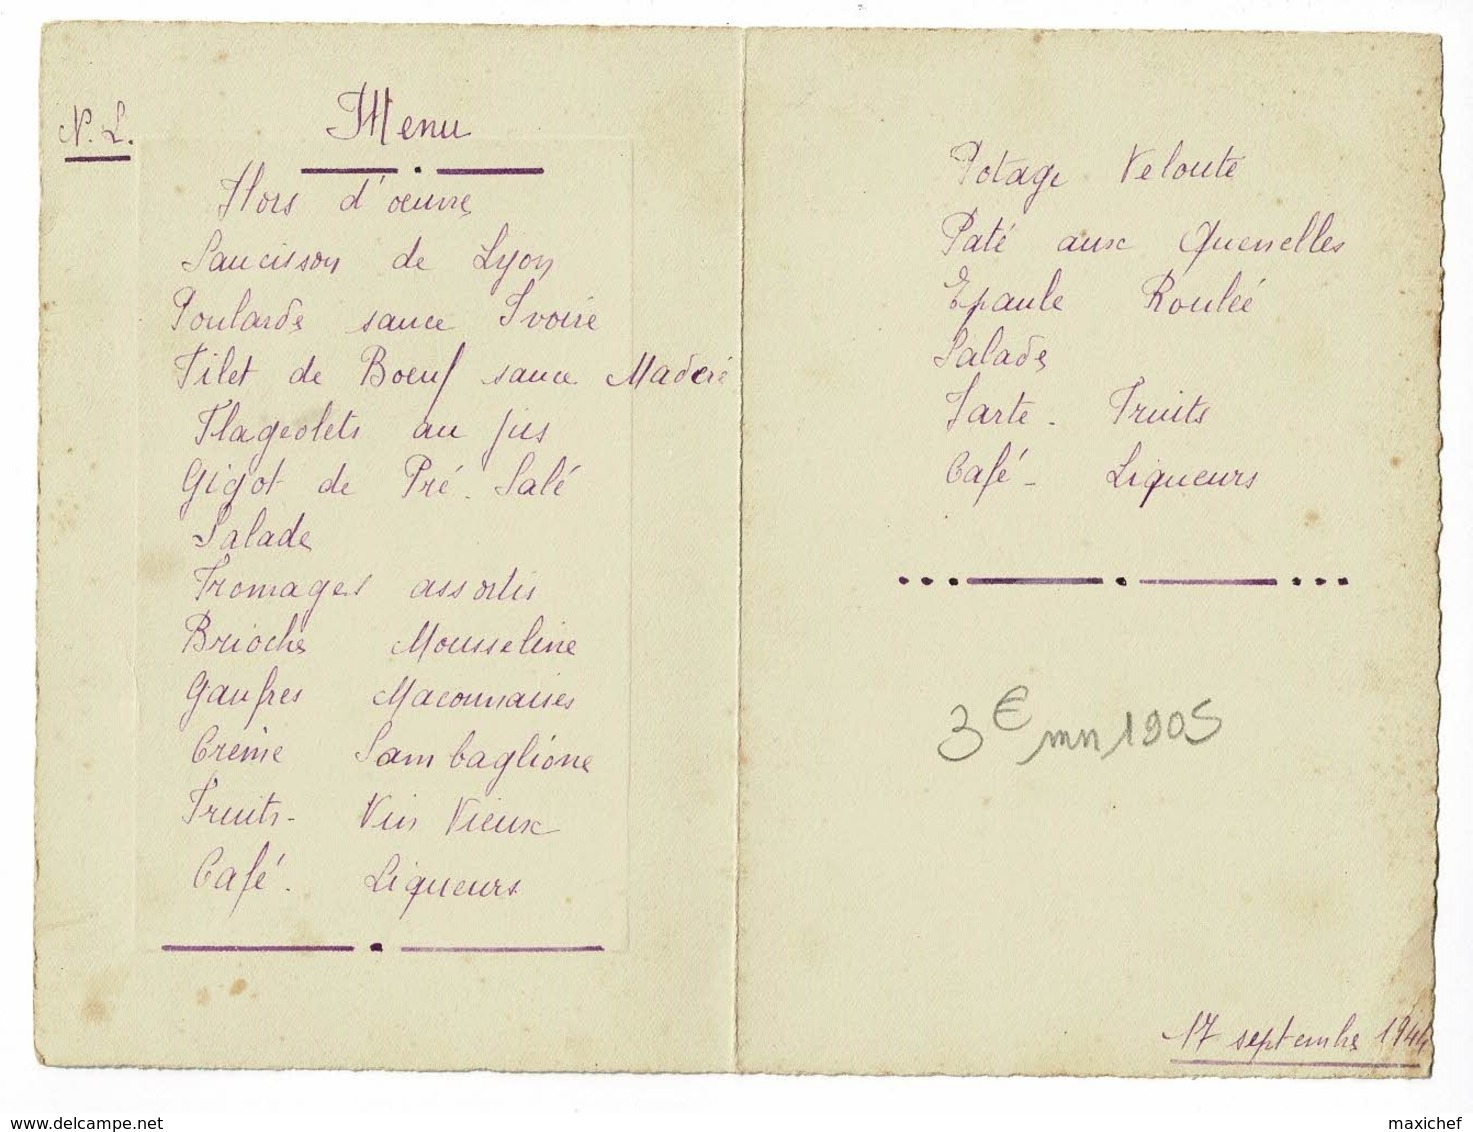 N. L.
Menu
Hors d'oeuvre
Saucisson de Lyon
Poularde sauce Ivoire
Filet de Boeuf sauce Madère
Flageolets au jus
Gigot de Pré-Salé
Salade
Fromages assortis
Brioche Mousseline
Gaufres Maconnaises
Crème Sambaglione
Fruits - Vin Vieux
Café. Liqueurs
Potage Velouté
Paté aux Quenelles
Epaule Roulée
Salade
Tarte - Fruits
Café - Liqueurs
3€ mn 1905
17 septembre 1944
www.delcampe.net
maxichef